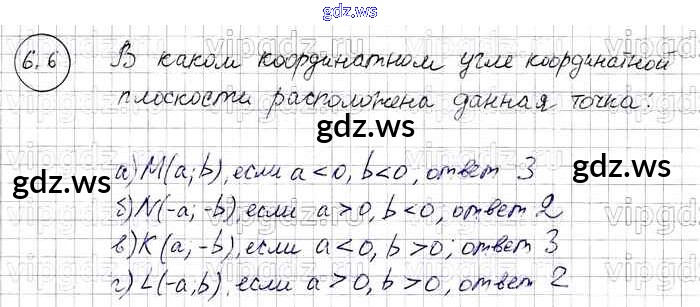 gdz.ws
6.6 В каком координатном угле координатной
плоскости расположена данная точка:
gdz.ws
gdz.ws
gdz.ws
а) M(a; b), если a<0, b<0, ответ 3
б) N(-a; -b), если a>0, b<0, ответ 2
в) K(a; -b), если a<0, b>0; ответ 3
г) L(-a,b), если a>0, b>0, ответ 2
gdz.ws